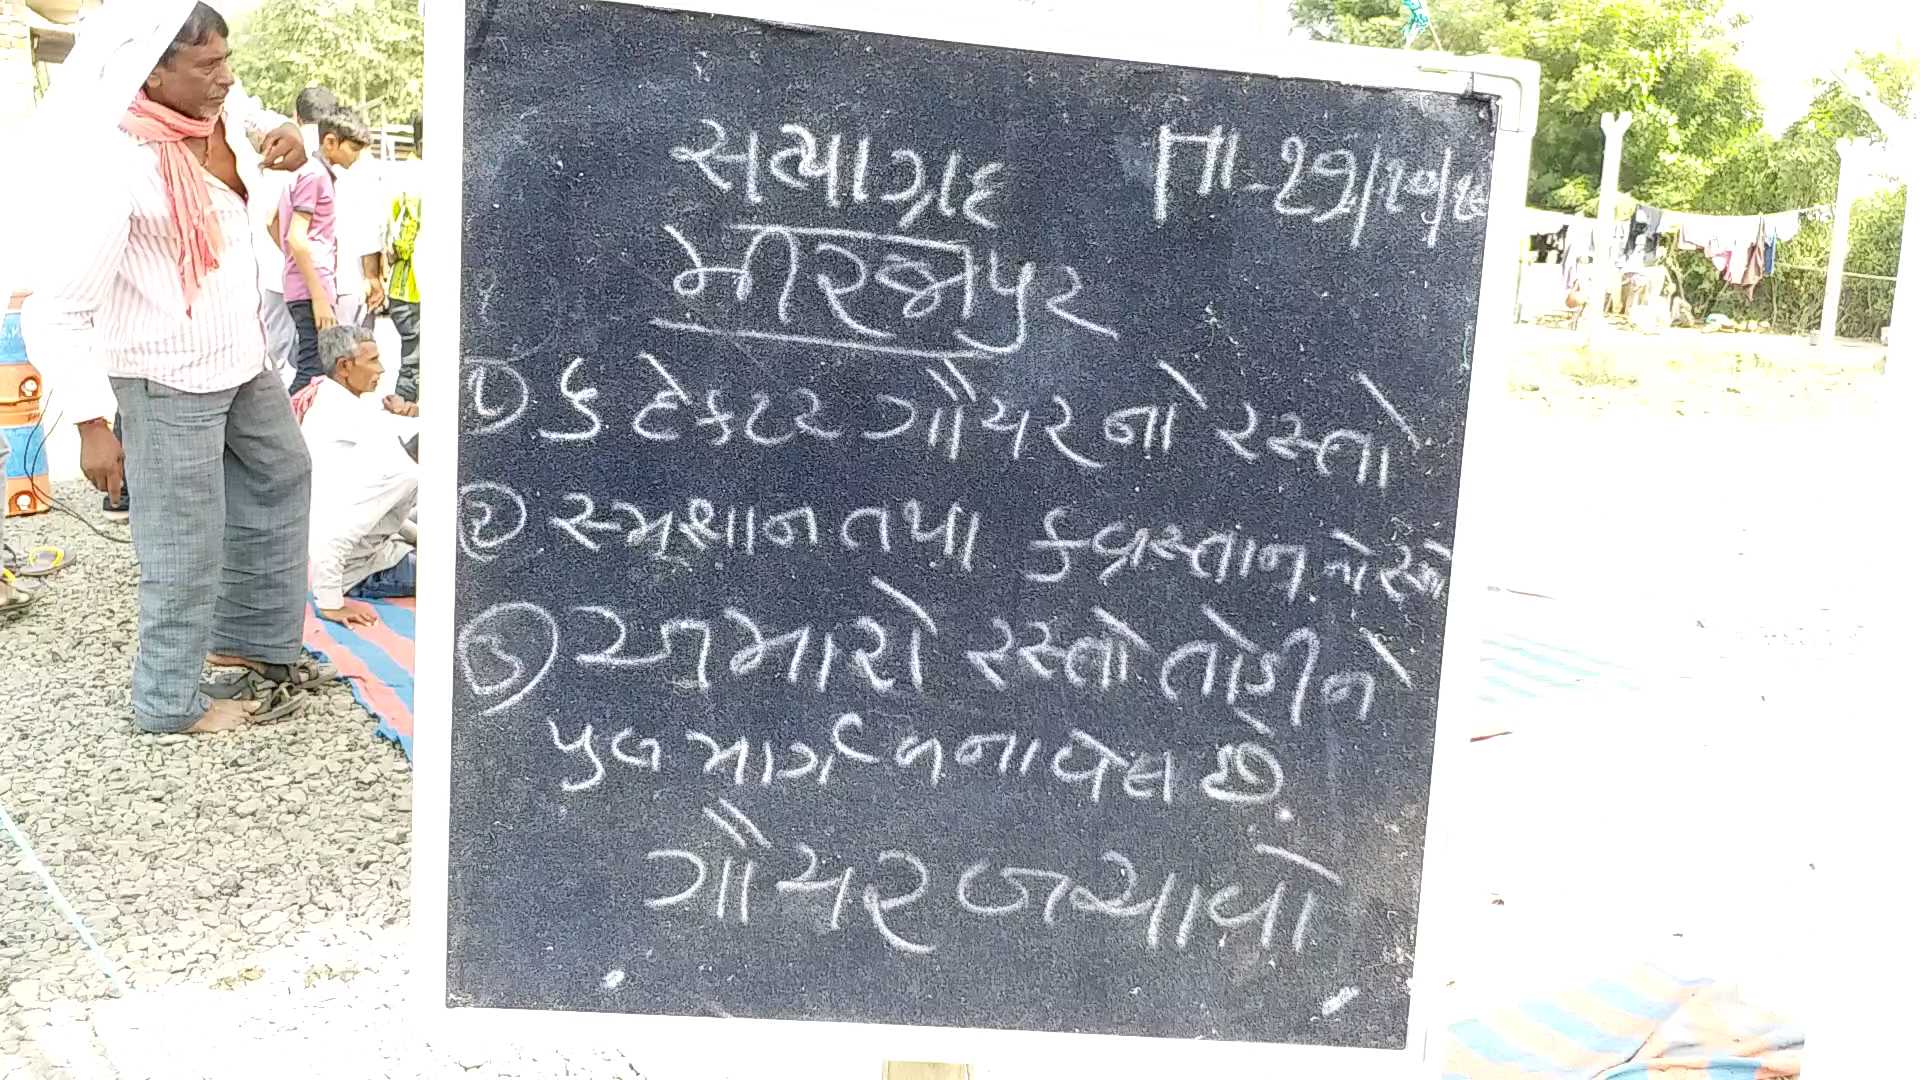 સત્યાગ્રહ તા-૨૭/૧૦/
મીરજાપુર
૧ ૬ હેક્ટર ગૌચરનો રસ્તો
૨ સ્મશાન તથા કબ્રસ્તાન નો રસ્તો
૩ અમારો રસ્તો તોડીને
પુલ માર્ગ બનાવેલ છે.
ગૌચર બચાવો